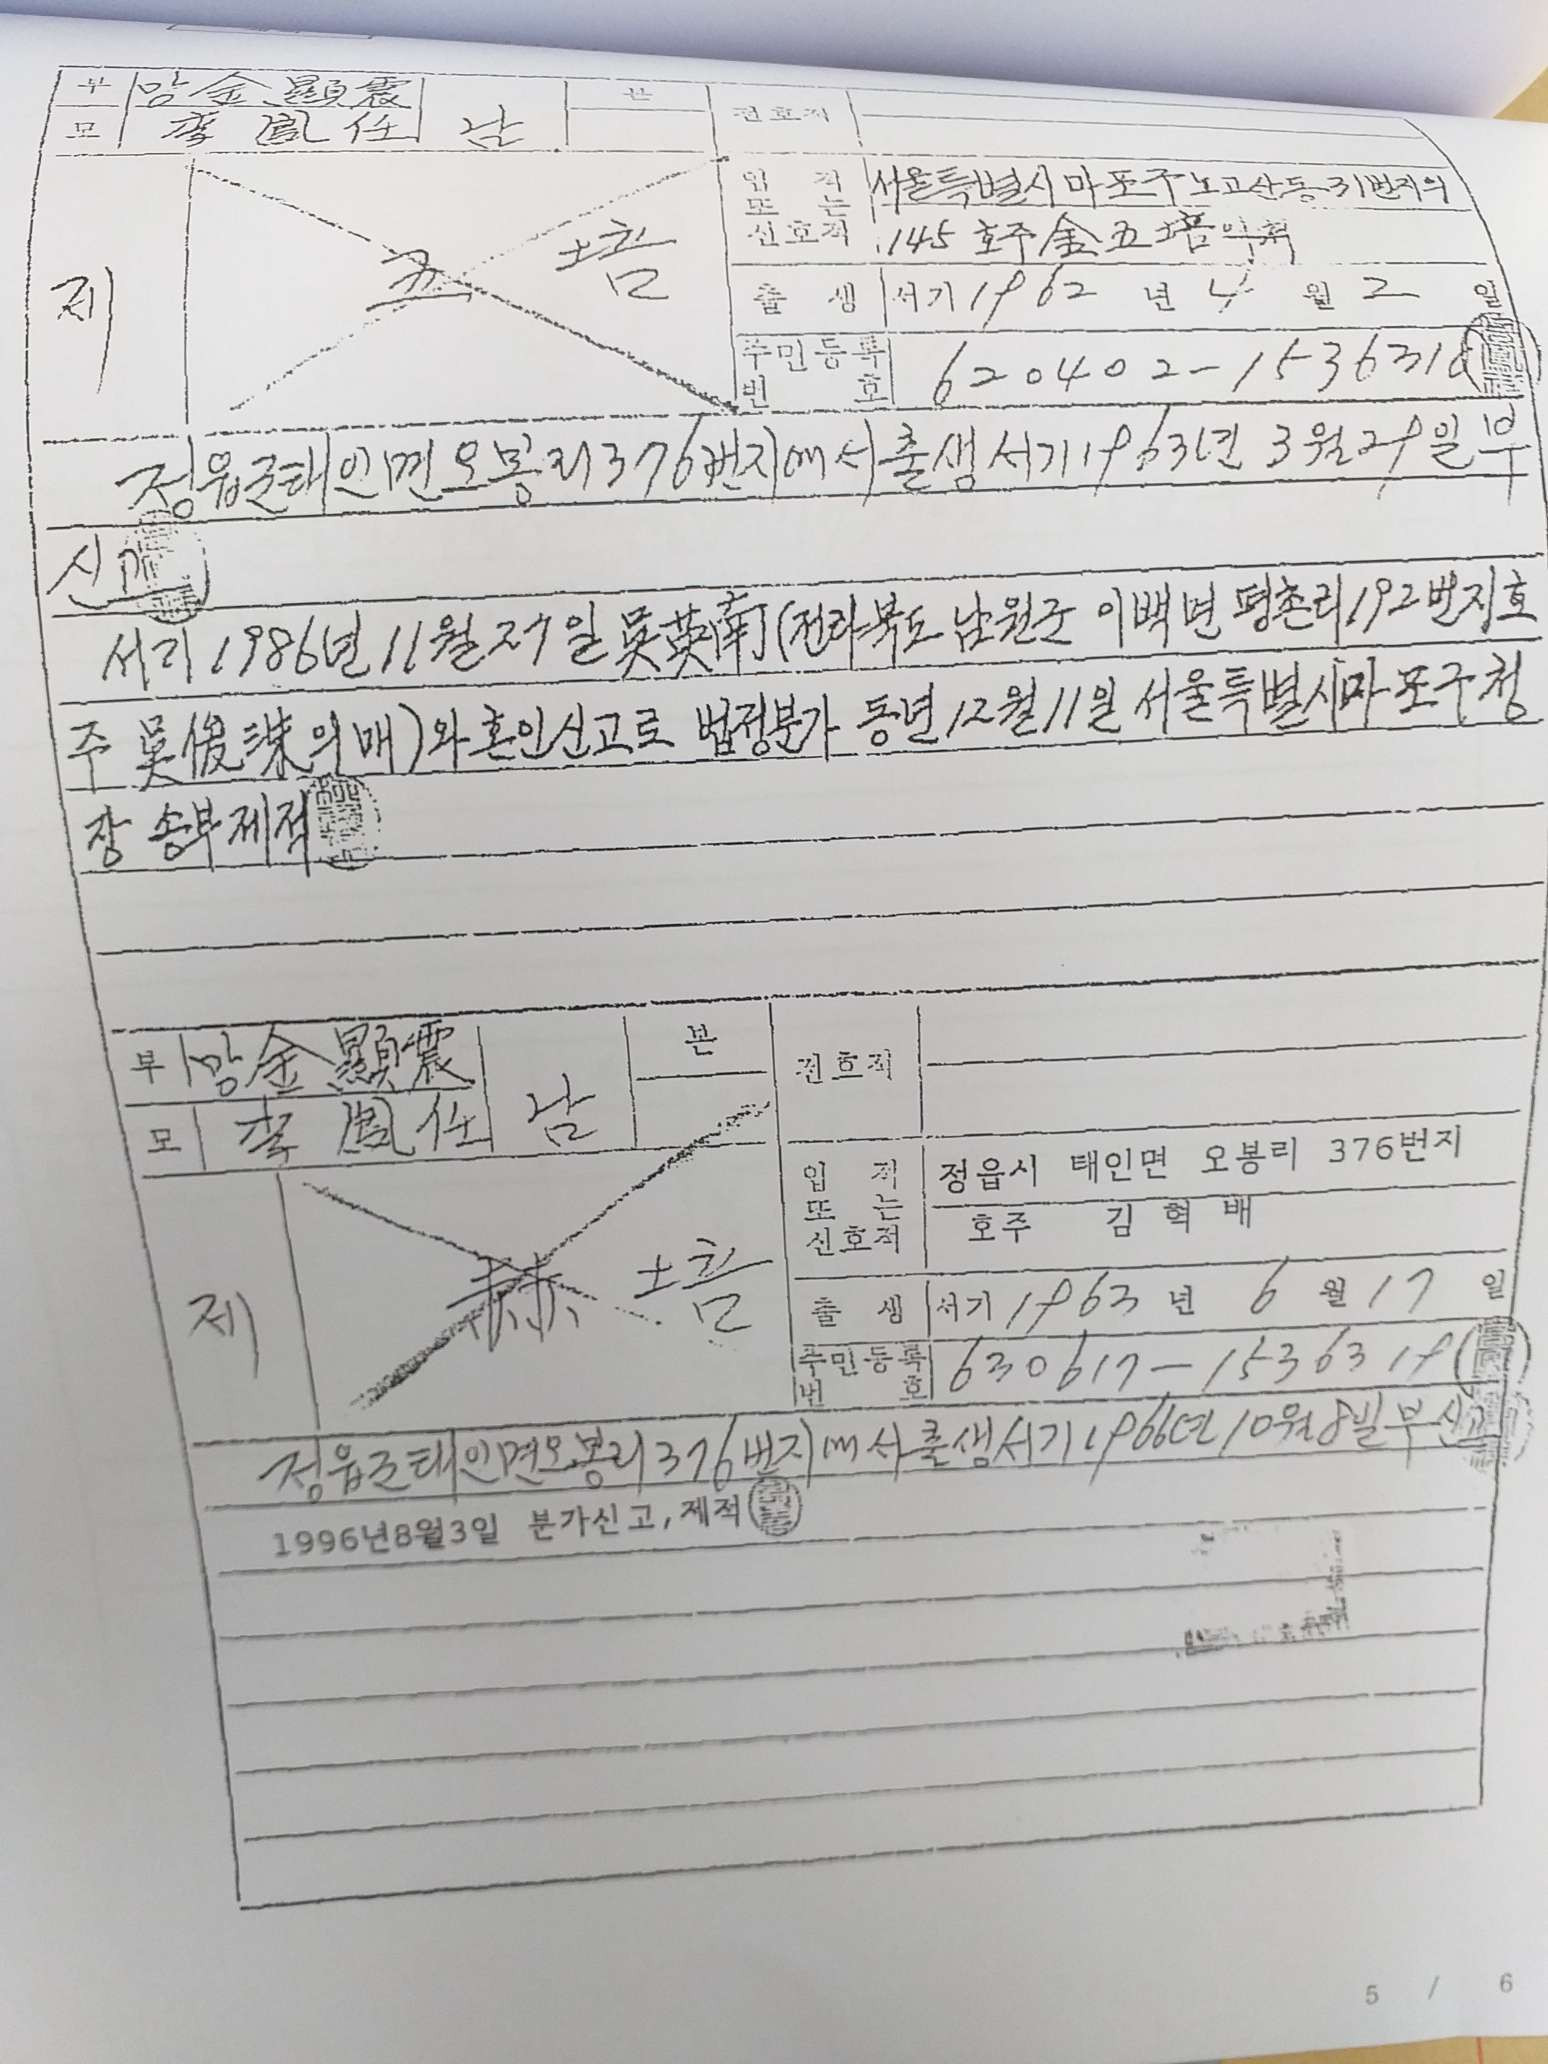 부 망 金顯震 남 본 전호적
모 李鳳任
제 五 培
입적 또는 신호적 서울특별시 마포구 노고산동 31번지의
145 호주 金五培
출생 서기 1962 년 4 월 2 일
주민등록번호 620402-1536318
정읍군태인면오봉리376번지에서출생서기1963년 3월29일부
신고
서기 1986년 11월 27일 吳英南(전라북도 남원군 이백면 평촌리192번지호
주 吳俊洙의매)와혼인신고로 법정분가 동년12월11일 서울특별시마포구청
장 송부제적
부 망 金顯震 남 본 전호적
모 李鳳任
제 赫 培
입적 또는 신호적 정읍시 태인면 오봉리 376번지
호주 김 혁 배
출생 서기 1963 년 6 월 17 일
주민등록번호 630617-1536319
정읍군태인면오봉리376번지에서출생서기1966년10월8일부신고
1996년8월3일 분가신고,제적
5 / 6